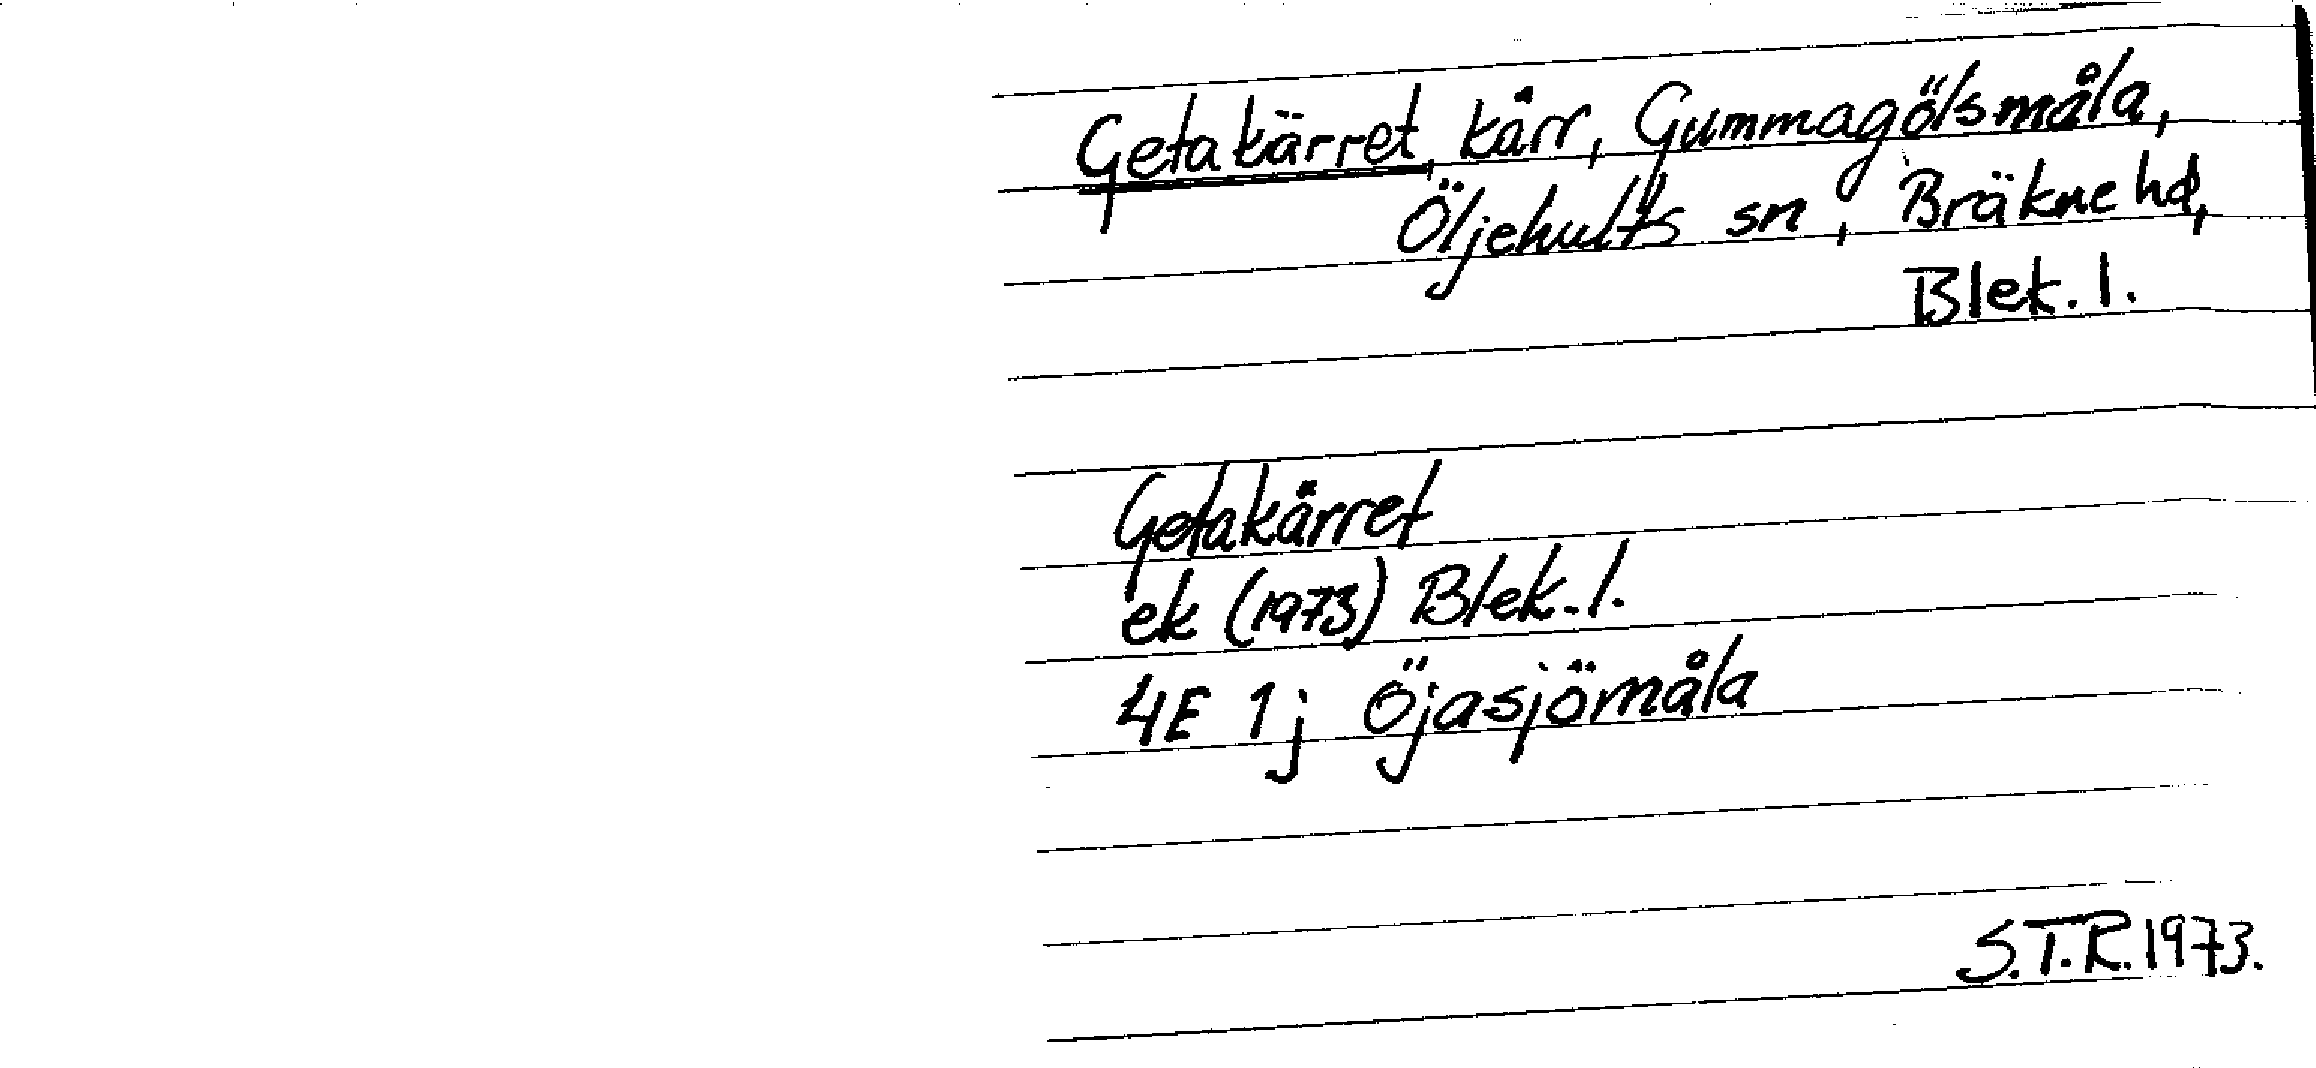 Getakärret, kärr, Gummagölsmåla,
Öljehults sn, Bräkne hd,
Blek. l.
Getakärret
ek (1973) Blek. l.
4E 1j Öjasjömåla
S.T.R. 1973.